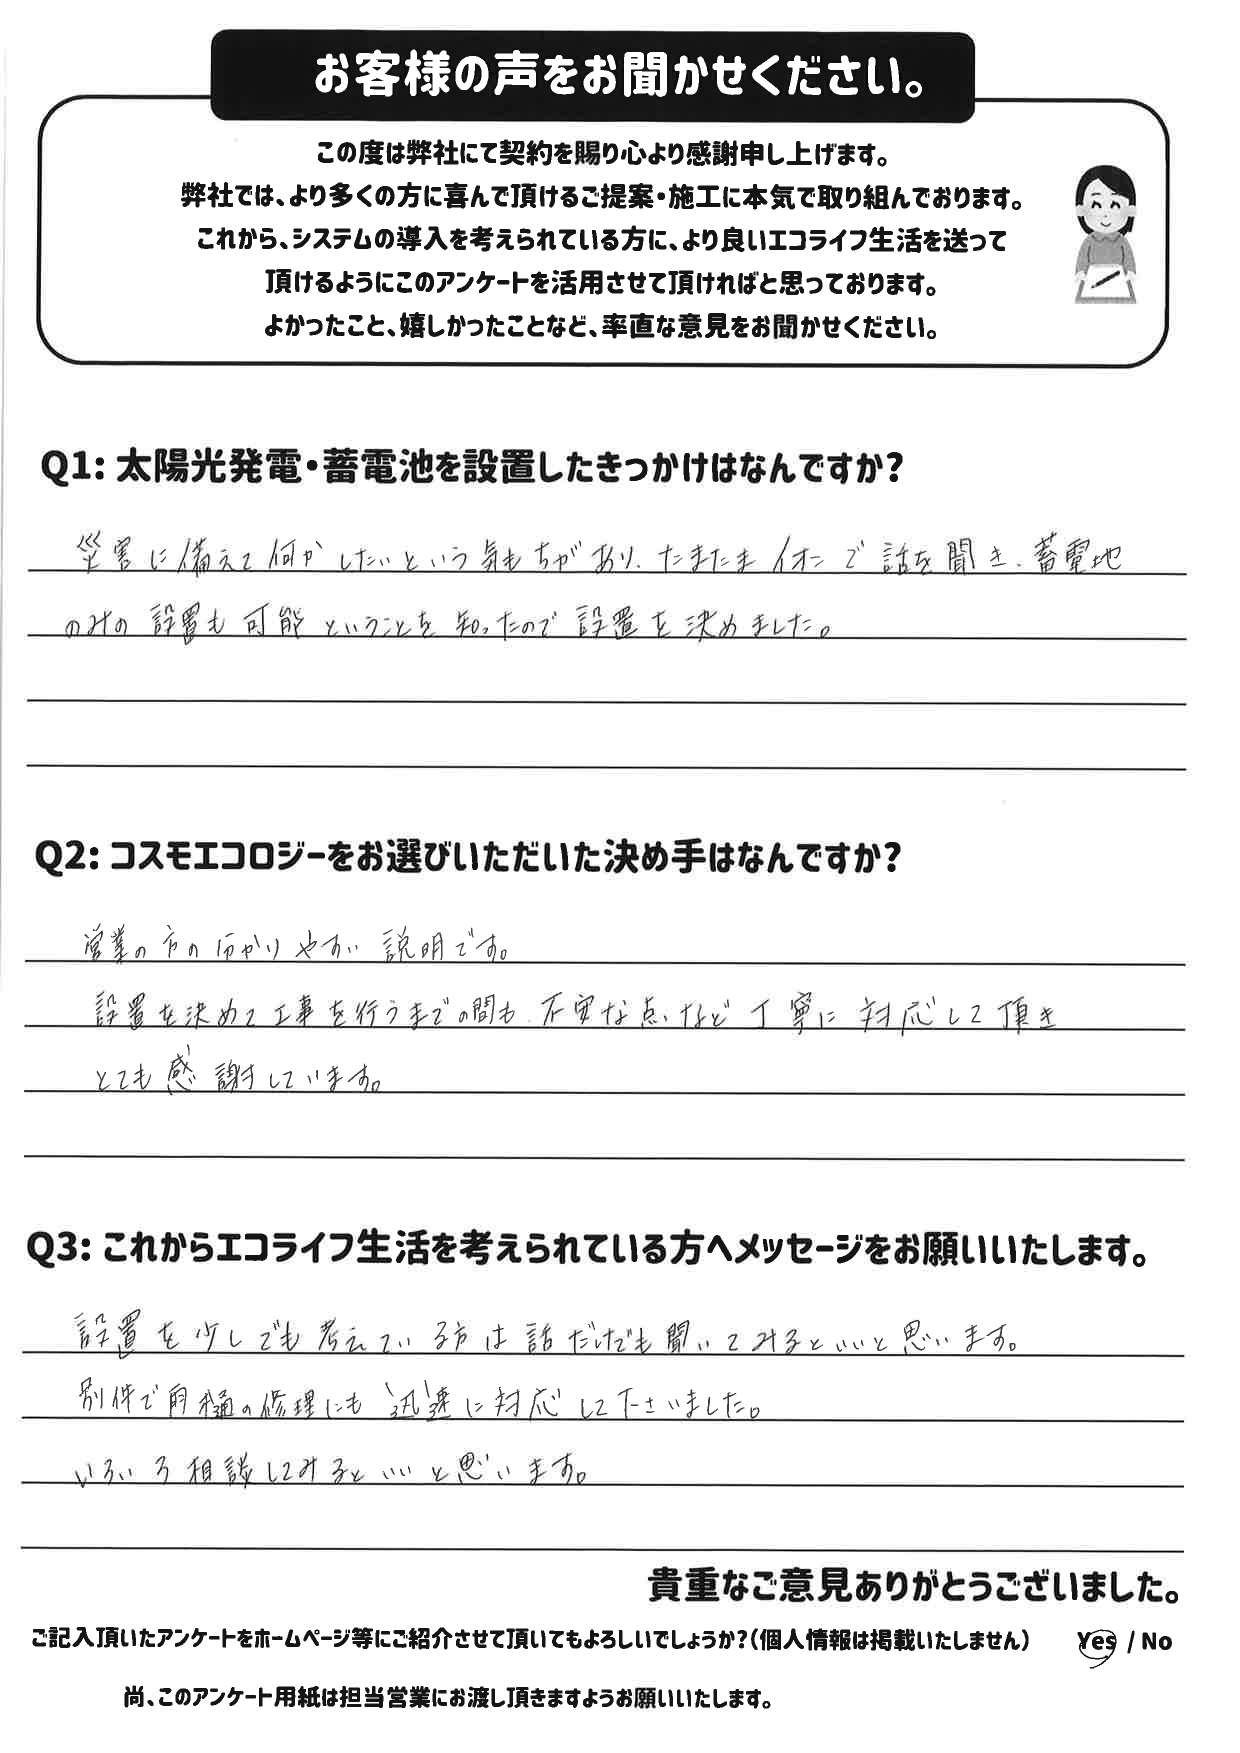 お客様の声をお聞かせください。
この度は弊社にて契約を賜り心より感謝申し上げます。
弊社では、より多くの方に喜んで頂けるご提案・施工に本気で取り組んでおります。
これから、システムの導入を考えられている方に、より良いエコライフ生活を送って
頂けるようにこのアンケートを活用させて頂ければと思っております。
よかったこと、嬉しかったことなど、率直な意見をお聞かせください。
Q1: 太陽光発電・蓄電池を設置したきっかけはなんですか?
災害に備えて何かしたいという気もちがあり、たまたまイオンで話を聞き、蓄電地
のみの設置も可能ということを知ったので設置を決めました。
Q2: コスモエコロジーをお選びいただいた決め手はなんですか?
営業の方の分かりやすい説明です。
設置を決めて工事を行うまでの間も不安な点など丁寧に対応して頂き
とても感謝しています。
Q3: これからエコライフ生活を考えられている方へメッセージをお願いいたします。
設置を少しでも考えている方は話だけでも聞いてみるといいと思います。
別件で雨樋の修理にも迅速に対応して下さいました。
いろいろ相談してみるといいと思います。
貴重なご意見ありがとうございました。
ご記入頂いたアンケートをホームページ等にご紹介させて頂いてもよろしいでしょうか?(個人情報は掲載いたしません) Yes / No
尚、このアンケート用紙は担当営業にお渡し頂きますようお願いいたします。